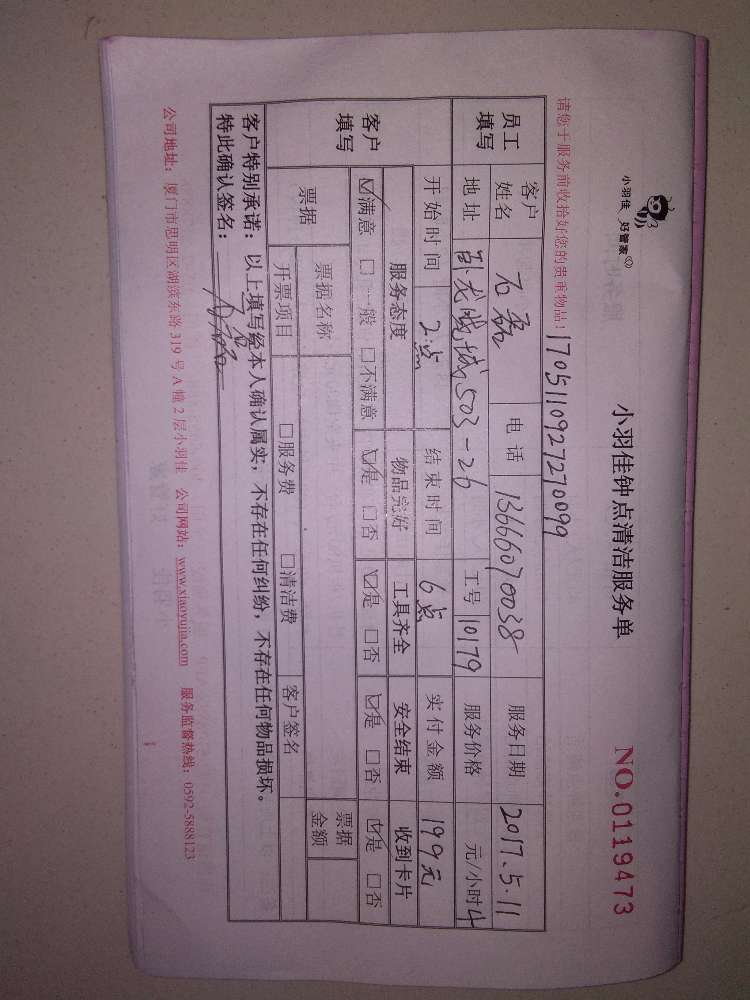 小羽佳 好管家
小羽佳钟点清洁服务单
NO.0119473
请您于服务前收拾好您的贵重物品！
1705110927270099
员工填写
客户姓名 石磊 电话 13666070038 服务日期 2017.5.11
地址 卧龙晓城503-26 工号 10179 服务价格 元/小时 4
开始时间 2点 结束时间 6点 实付金额 199元
客户填写
服务态度 物品完好 工具齐全 安全结束 收到卡片
☑满意 □一般 □不满意 ☑是 □否 ☑是 □否 ☑是 □否 ☑是 □否
票据 票据名称 票据金额
开票项目 □服务费 □清洁费 客户签名
客户特别承诺：以上填写经本人确认属实，不存在任何纠纷，不存在任何物品损坏。
特此确认签名：
公司地址：厦门市思明区湖滨东路319号A幢2层小羽佳 公司网站：www.xiaoyujia.com 服务监督热线：0592-5888123